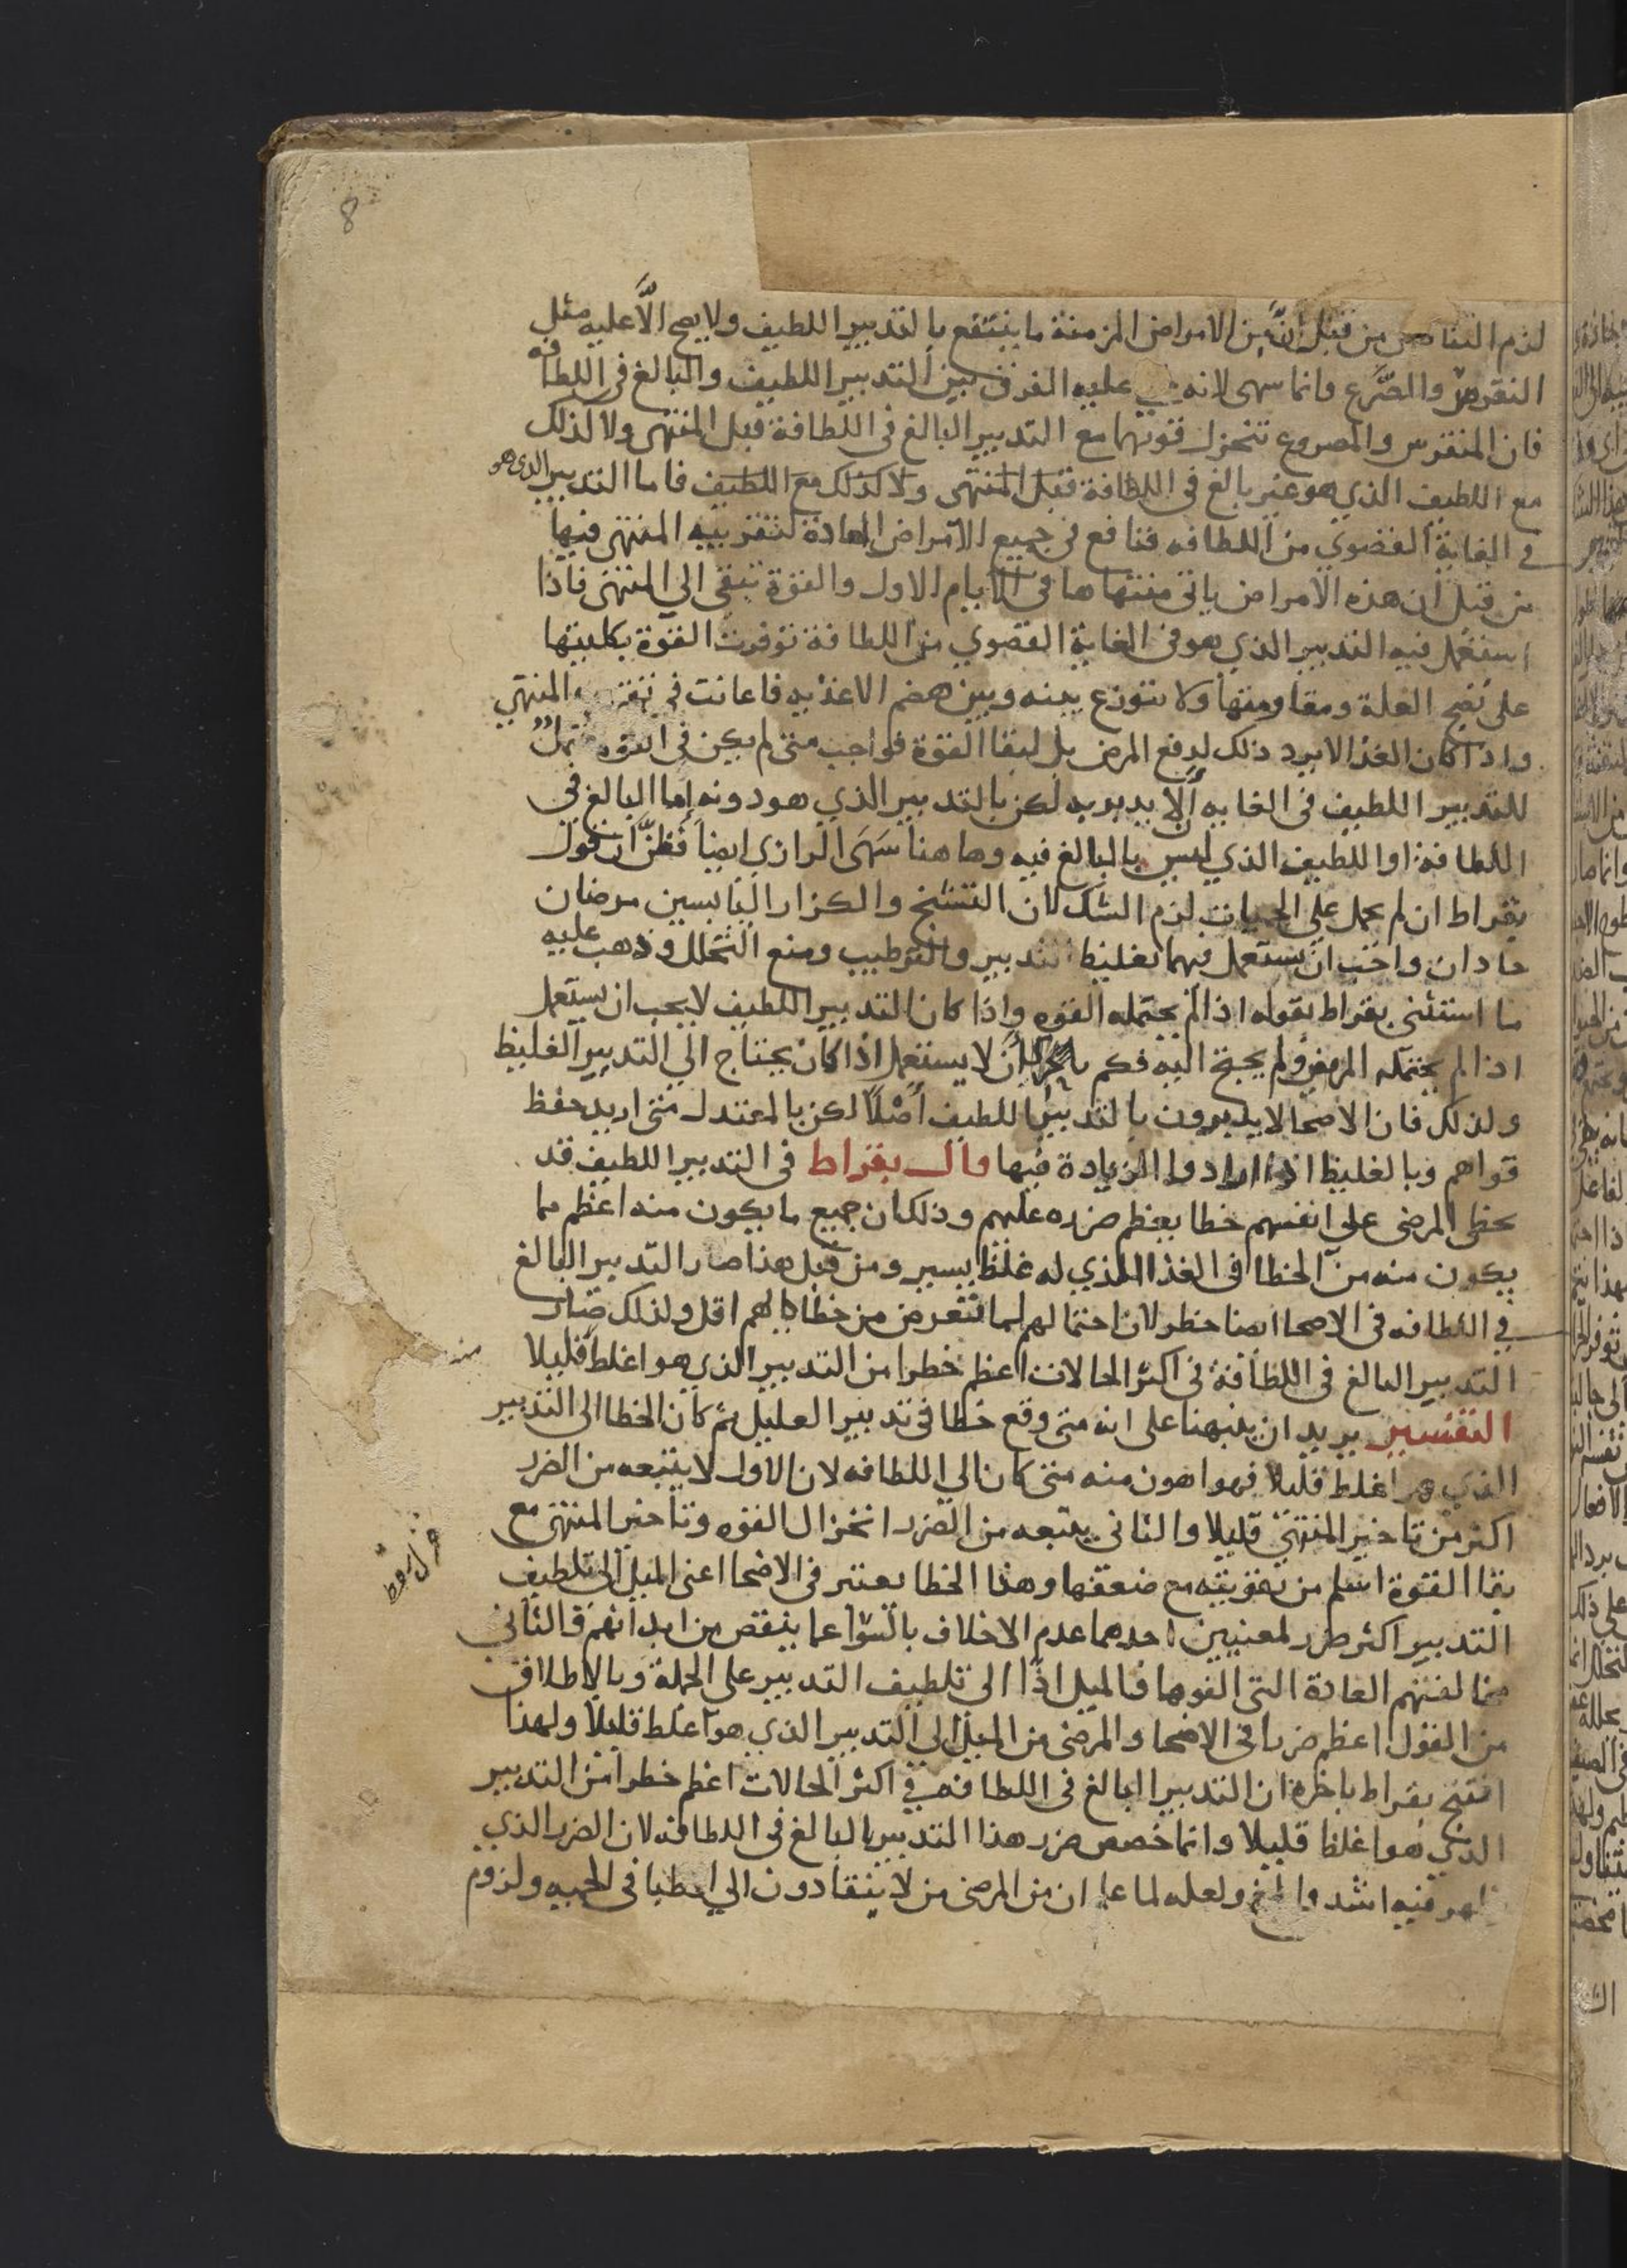 8
لزم التناقض من قبل انّ من الامراض المزمنة ما ينتفع بالتدبير اللطيف ولا يصح الّا عليه مثل
النقرس والصّرع وانما سهى لانه عليه الفرق بين التدبير اللطيف والبالغ فى اللطافه
فان المنقرس والمصروع تنخزل قوتهما مع التدبير البالغ فى اللطافة قبل المنتهى ولا كذلك
مع اللطيف الذي هو غير بالغ فى اللطافة قبل المنتهى ولا كذلك مع اللطيف فاما التدبير الذى هو
في الغاية القصوي من اللطافه فنافع فى جميع الامراض الحادة لتقريبه المنتهى فيها
من قبل ان هذه الامراض ياتى منتهاها فى الايام الاول والقوة تبقى الي المنتهى فاذا
استعمل فيه التدبير الذي هو فى الغاية القصوي من اللطافة توفرت القوة بكليتها
على نضج العلة ومقاومتها ولا تتوزع بينه وبين هضم الاغذيه فاعانت في المنتهي
واذا كان الغذا لا يرد ذلك لدفع المرض بل لبقا القوة فواجب متى لم يكن فى القوة تحمل
للتدبير اللطيف فى الغايه ألّا يدبر به لكن بالتدبير الذي هو دونه اما البالغ في
اللطافة او اللطيف الذي ليس بالبالغ فيه وها هنا سَهَى الرازي ايضاً فظنّ ان قول
بقراط ان لم يحمل علي الحميات لزم الشك لان التشنج والكزاز اليابسين مرضان
حادان واجب ان يستعمل فيهما تغليظ التدبير والترطيب ومنع التحلل وذهب عليه
ما استثنى بقراط بقوله اذا لم يحتمله القوه واذا كان التدبير اللطيف لا يجب ان يستعمل
اذا لم يحتمله المرض ولم يحتج اليه فكم بالحرى أن لا يستعمل اذا كان يحتاج الي التدبير الغليظ
ولذلك فان الاصحا لا يدبرون بالتدبير اللطيف أصْلاً لكن بالمعتدل متى اريد حفظ
قواهم وبالغليظ اذا ارادوا الزيادة فيها قال بقراط فى التدبير اللطيف قد
يخطى المرضى على انفسهم خطا يعظم ضرره عليهم وذلك ان جميع ما يكون منه اعظم مما
يكون منه من الخطا فى الغذا الذي له غلظ يسير ومن قبل هذا صار التدبير البالغ
في اللطافه فى الاصحا ايضا خطر لان احتمالهم لما يتعرض من خطائهم اقل ولذلك صار
التدبير البالغ فى اللطافة فى اكثر الحالات اعظم خطرا من التدبير الذي هو اغلظ قليلا
التفسير يريد ان ينبهنا على انه متى وقع خطا فى تدبير العليل ثم كان الخطا الى التدبير
الذي هو اغلظ قليلا فهو اهون منه متى كان الي اللطافه لان الاول لا يتبعه من الضرر
اكثر من تاخير المنتهى قليلا والثانى يتبعه من الضرر انخزال القوه وتاخير المنتهى مع
بقا القوة اسلم من تقريبه مع ضعفها وهذا الخطا يعتبر فى الاصحا اعنى الميل الى تلطيف
التدبير اكثر ضرر لمعنيين احدهما عدم الاخلاف بالسّوا عما ينقص من ابدانهم والثاني
مخالفتهم العادة التى الفوها فالميل اذًا الى تلطيف التدبير على الجملة وبالاطلاق
من القول اعظم ضررا فى الاصحا والمرضى من الميل الى التدبير الذي هو اغلظ قليلا ولهذا
افتتح بقراط باخرة ان التدبير البالغ فى اللطافه في اكثر الحالات اعظم خطرا من التدبير
الذي هو اغلظ قليلا وانما خصص ضرر هذا التدبير بالبالغ فى اللطافه لان الضرر الذي
فيه اشد ولعله لما علم ان من المرضى من لا ينقادون الي الاطبا فى الحميه ولزوم